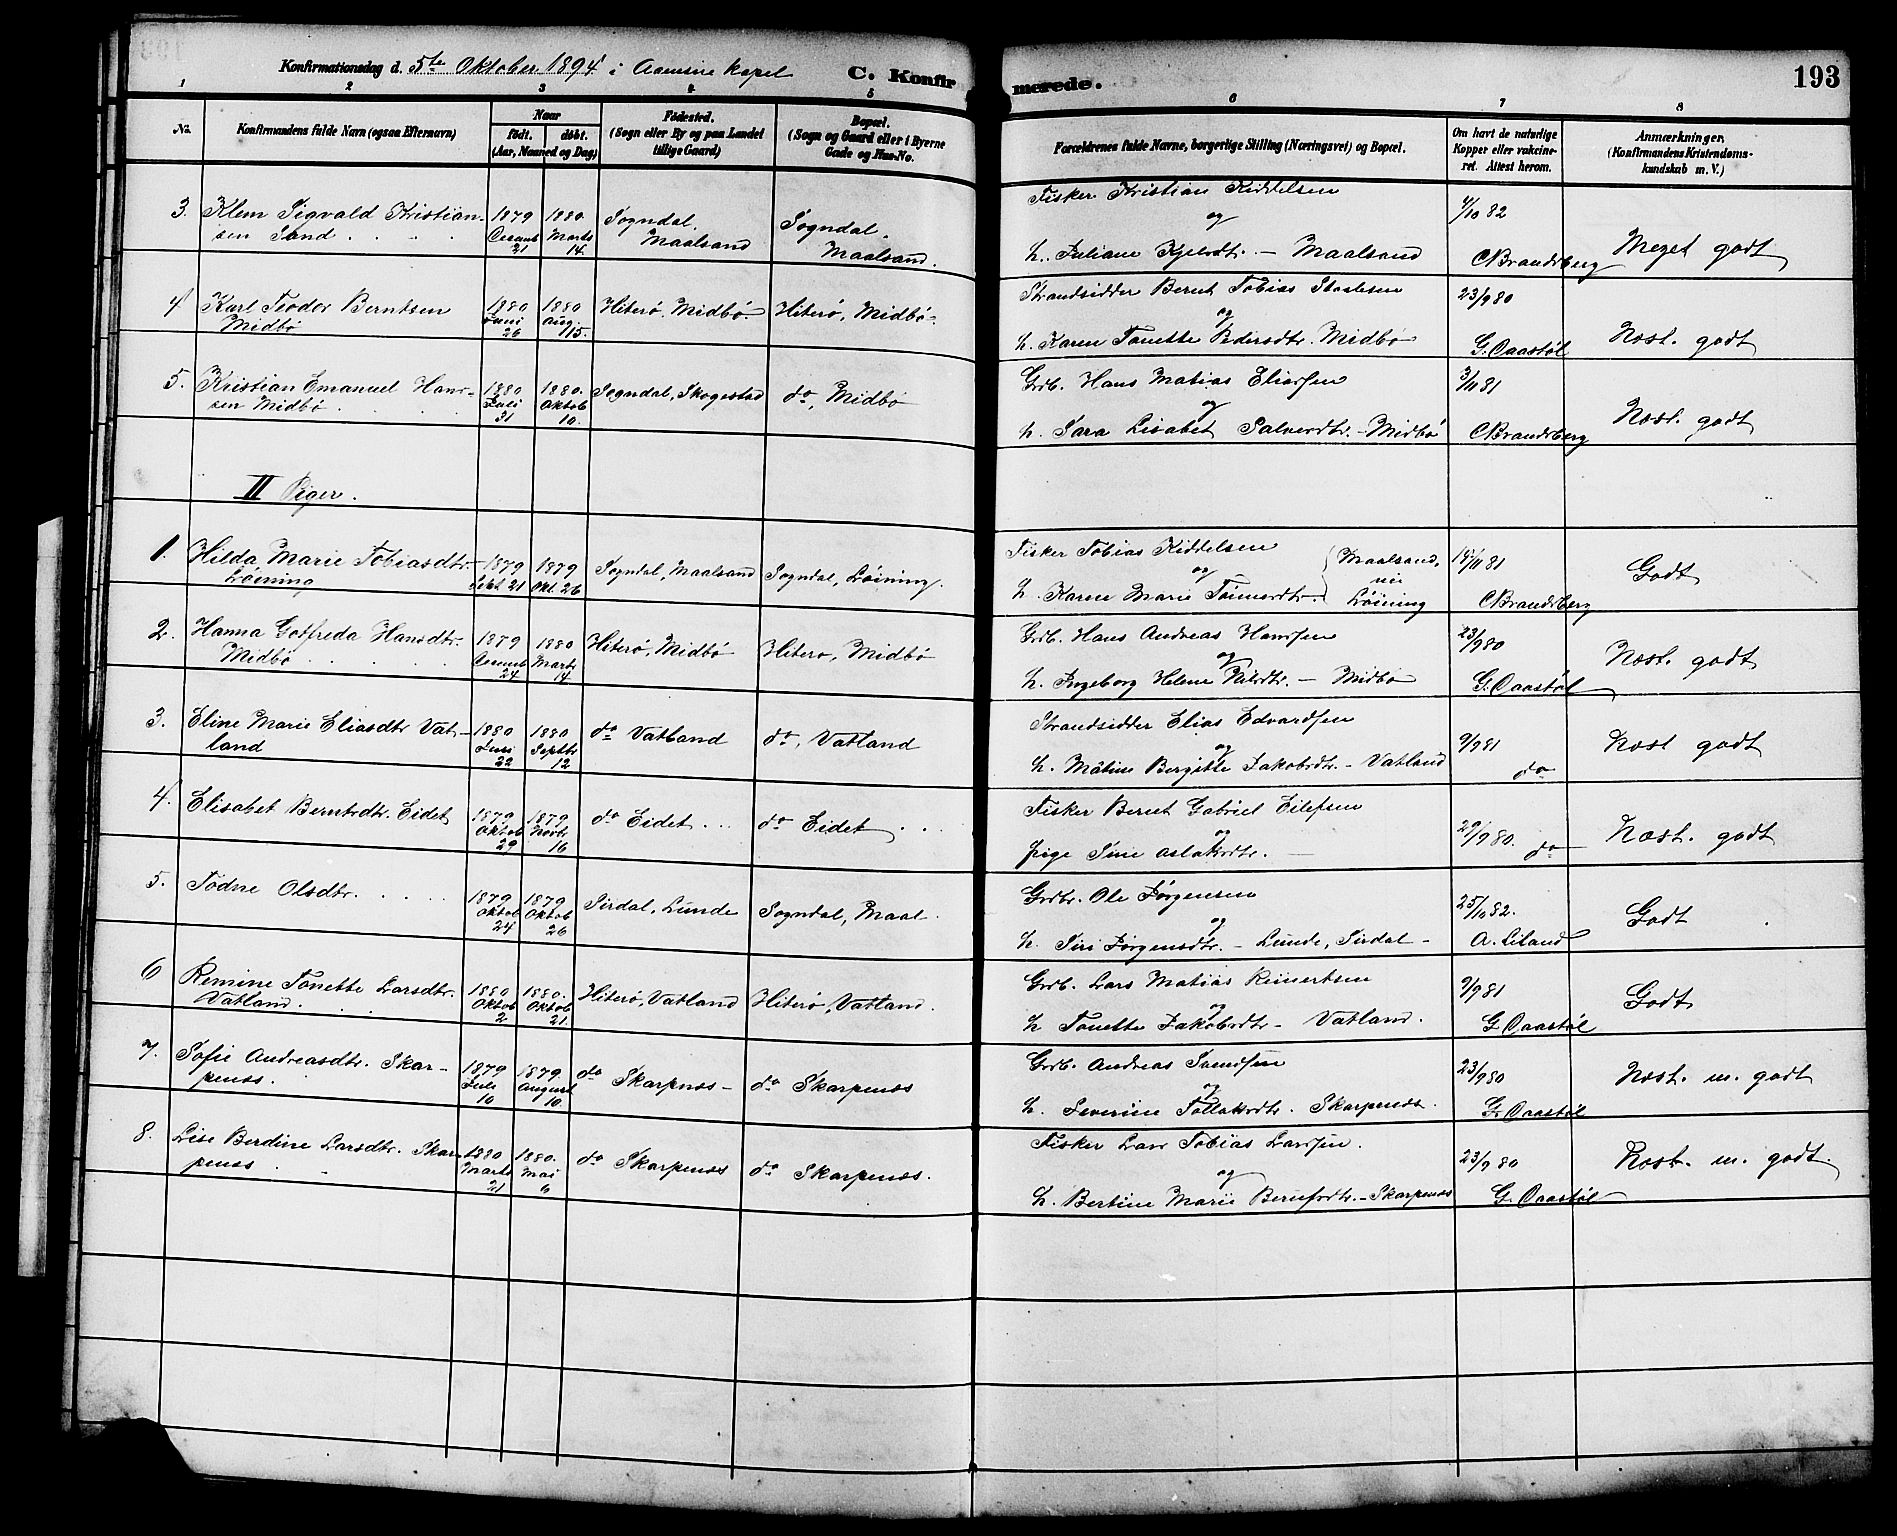 Konfirmationsdag d. 5te Oktober 1894 i Aaensire kapel
C. Konfirmerede.
193
1 2 3 4 5 6 7 8
No. Konfirmandens fulde Navn (ogsaa Efternavn) Naar født. døbt. (Aar, Maaned og Dag) Fødested. (Sogn eller By og paa Landet tillige Gaard) Bopæl. (Sogn og Gaard eller i Byerne Gade og Hus-No. Forældrenes fulde Navne, borgerlige Stilling (Næringsvei) og Bopæl. Om havt de naturlige Kopper eller vakcineret. Attest herom. Anmærkninger. (Konfirmandens Kristendomskundskab m. V.)
3. Klem Sigvald Kristiansen Sand 1879 Decemb 21 1880 Marts 14. Sogndal, Maalsand Sogndal. Maalsand. Fisker Kristian Kiddelsen og h. Juliane Kjelsdtr. - Maalsand 4/10 82 CBrandsberg Meget godt
4 Karl Teodor Berntsen Midbø 1880 Juni 26 1880 Aug. 15. Hiterø, Midbø. Hiterø, Midbø. Strandsidder Bernt Tobias Staalesen og h. Karen Tonette Pedersdtr. Midbø 23/9 80 G. Oaastøl Næst. godt
5. Kristian Emanuel Hansen Midbø 1880 Juli 31 1880. Oktob 10. Sogndal, Skogestad do, Midbø Grdb. Hans Matias Eliassen og h. Sara Lisabet Salvesdtr. - Midbø 3/11 81 CBrandsberg Næst. godt
II Piger.
1. Hilda Marie Tobiasdtr. Løining 1879 Sept. 21 1879 Okt. 26 Sogndal, Maalsand Sogndal, Løining. Fisker Tobias Kiddelsen og h. Karen Marie Tønnesdtr. Maalsand, nu Løining 14/11 81 CBrandsberg Godt
2. Hanna Gotfreda Hansdtr. Midbø 1879 Decemb 24 1880 Marts 14. Hiterø, Midbø Hiterø, Midbø Grdb. Hans Andreas Hansen og h. Ingeborg Helene Nilsdtr. - Midbø 23/9 80 G. Oaastøl Næst. godt
3. Eline Marie Eliasdtr Vatland 1880 Juni 22 1880 Septbr 12 do Vatland do, Vatland Strandsidder Elias Edvardsen og h. Matine Bergitte Jakobsdtr. - Vatland 9/9 81 do Næst godt
4. Elisabet Berntsdtr. Eidet 1879 Oktob 29 1879 Novbr 16 do Eidet do Eidet Fisker Bernt Gabriel Eilefsen og pige Sine Aslaksdtr. - 29/9 80. do Næst. godt
5. Tødne Olsdtr. 1879 Oktob 24 1879 Oktob 26 Sirdal, Lunde Sogndal, Maal. Grdbr. Ole Jørgensen og h. Siri Jørgensdtr. - Lunde, Sirdal - 25/10 82. A. Liland Godt
6 Remine Tonette Larsdtr. Vatland. 1880 Oktob 2 1880. Oktob 21. Hiterø, Vatland Hiterø, Vatland. Grdb. Lars Matias Reinertsen og h Tonette Jakobsdtr - Vatland. 9/9 81 G Oaastøl Godt
7. Sofie Andreasdtr. Skarpenæs. 1879 Juli 10 1879. August 10. do Skarpnæs - do Skarpenæs Grdb. Andreas Svendsen og h. Severine Tollaksdtr. Skarpenæs. 23/9 80 G. Oaastøl Næst. m. godt
8. Lise Berdine Larsdtr. Skarpenæs 1880 Marts 21 1880. Mai 6 do Skarpenæs do Skarpenæs. Fisker Lars Tobias Larsen. og h. Bertine Marie Berntsdtr. - Skarpenæs 23/9 80 G. Oaastøl Næst. m. godt.